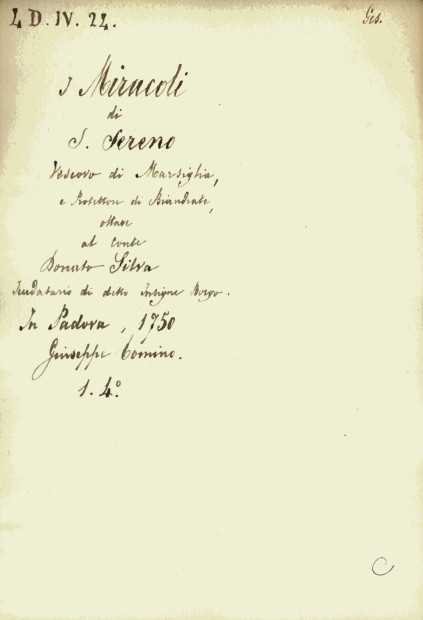 4 D. IV. 22. Ges.
I Miracoli
di
S. Sereno
Vescovo di Marsiglia,
e Protettore di Biandrate,
ottave
al conte
Donato Silva
Feudatario di detto Insigne Borgo.
In Padova, 1750
Giuseppe Comino.
1. 4.°
C